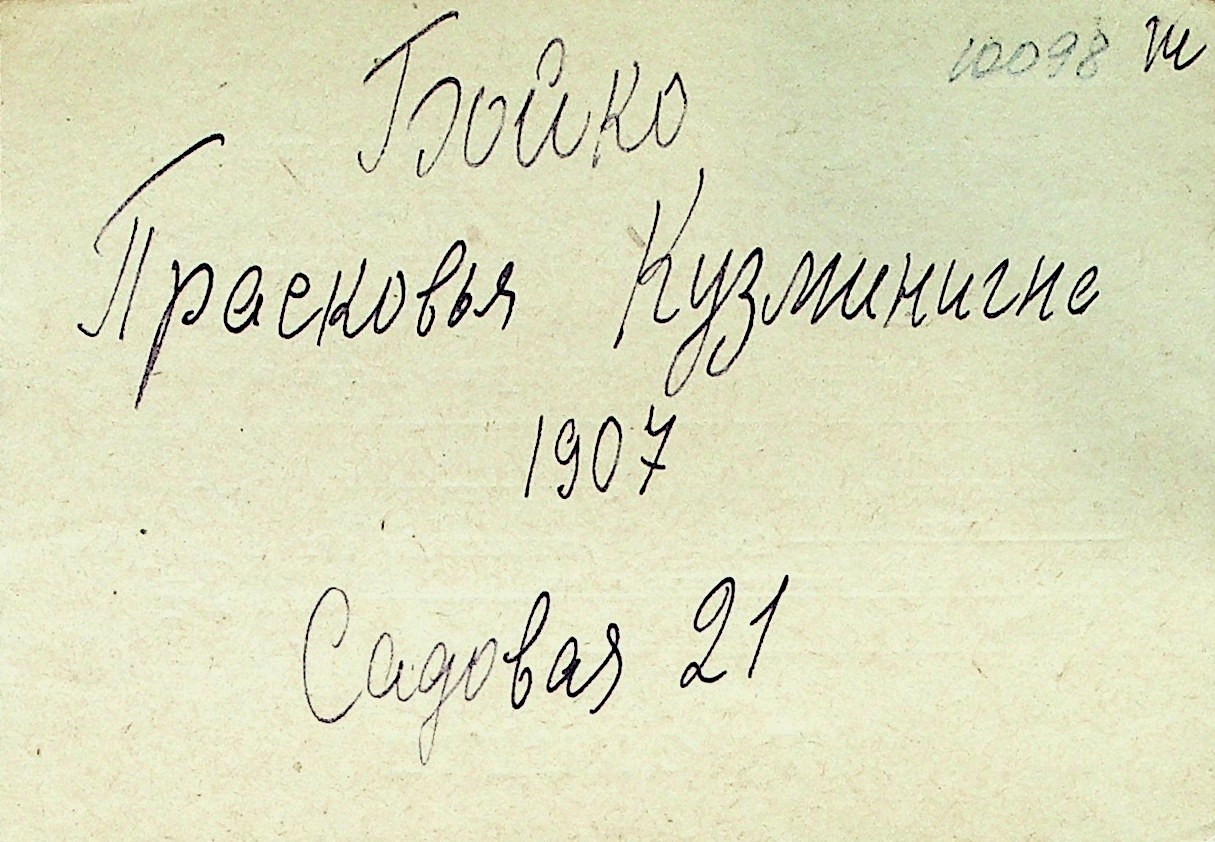 10098 ш
Бойко
Прасковья Кузминична
1907
Садовая 21